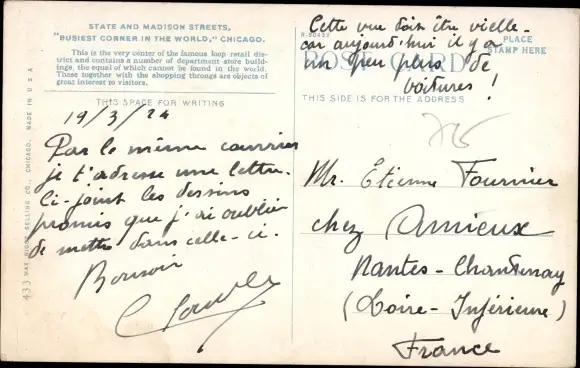 STATE AND MADISON STREETS,
"BUSIEST CORNER IN THE WORLD," CHICAGO.
This is the very center of the famous loop retail dis-
trict and contains a number of department store build-
ings, the equal of which cannot be found in the world.
These together with the shopping throngs are objects of
great interest to visitors.
THIS SPACE FOR WRITING
19/3/24
Par le même courrier
je t'adresse une lettre.
Ci-joint les dessins
promis que j'ai oublié
de mettre dans celle-ci.
Bonsoir
433 MAX RIGOT SELLING CO., CHICAGO. MADE IN U S A
Cette vue doit être vielle-
car aujourd'hui il y a
un peu plus de
voitures!
POST CARD
PLACE
STAMP HERE
THIS SIDE IS FOR THE ADDRESS
Mr. Etienne Fournier
chez Amieux
Nantes-Chantenay
(Loire-Inférieure)
France